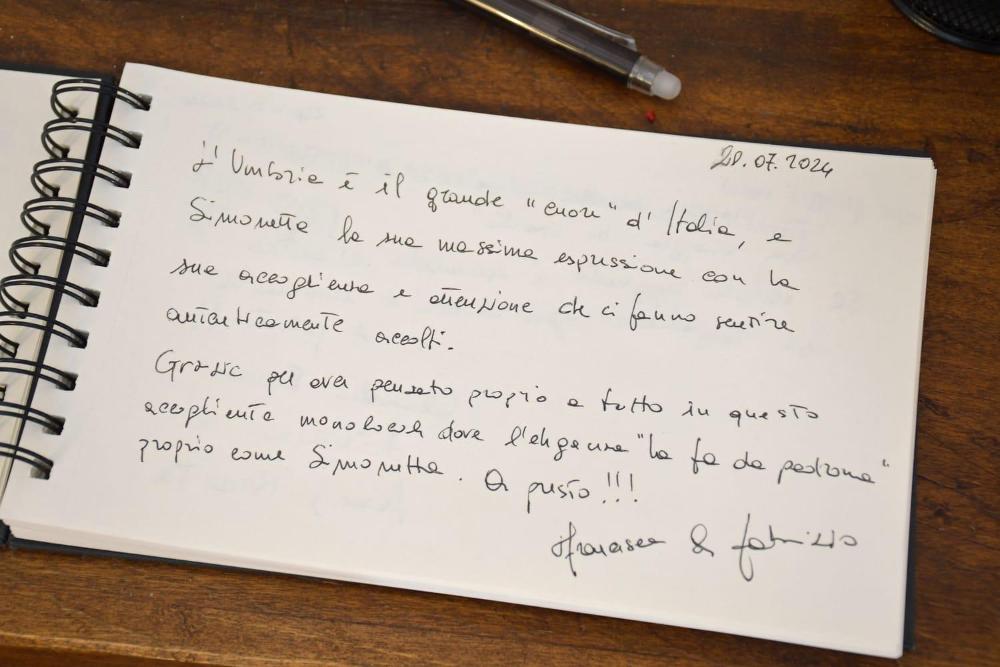 28.07.2024
L'Umbria è il grande "cuore" d'Italia, e
Simonetta la sua massima espressione con la
sua accoglienza e attenzione che ci fanno sentire
autenticamente accolti.
Grazie per aver pensato proprio a tutto in questo
accogliente monolocale dove l'eleganza "la fa da padrona"
proprio come Simonetta. A presto!!!
Francesca & Fabrizio